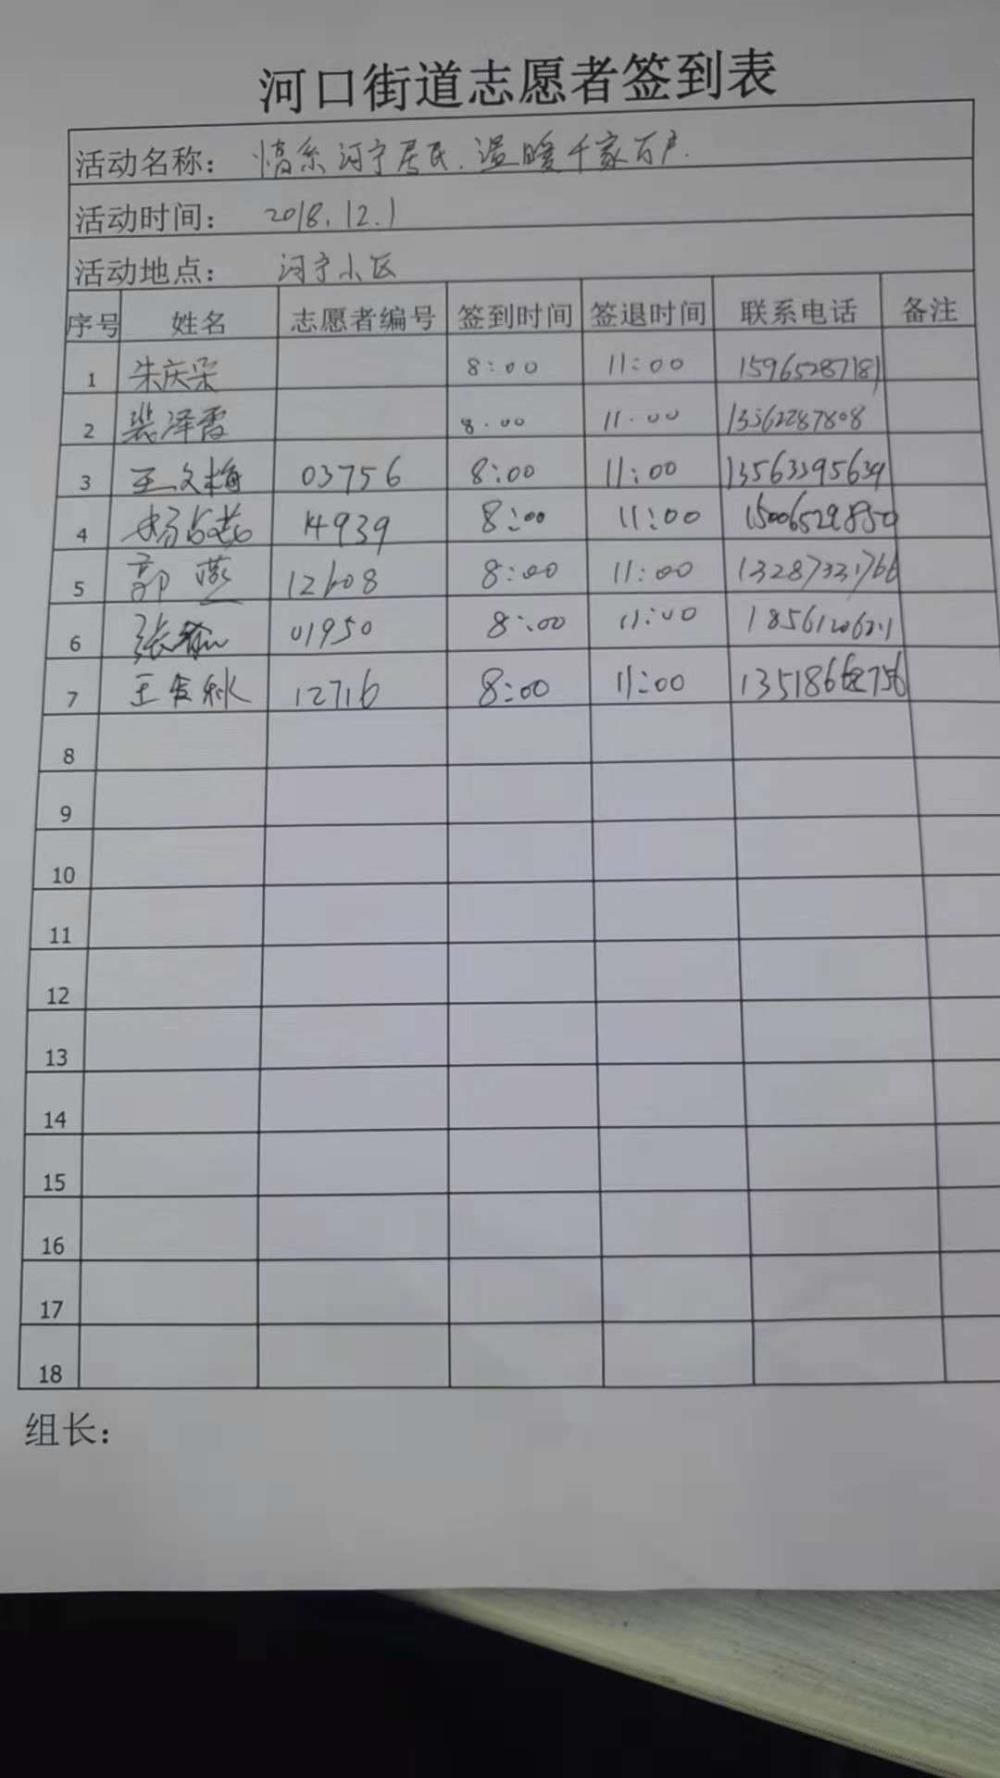 河口街道志愿者签到表
活动名称： 情系河宁居民.温暖千家万户.
活动时间： 2018.12.1
活动地点： 河宁小区
序号 姓名 志愿者编号 签到时间 签退时间 联系电话 备注
1 朱庆朵 8:00 11:00 15965287181
2 裴泽雪 8.00 11.00 13562287808
3 王文梅 03756 8:00 11:00 13563395639
4 14939 8:00 11:00 15006529850
5 郭燕 12608 8:00 11:00 13287331766
6 01950 8:00 11:00
7 12716 8:00 11:00
8
9
10
11
12
13
14
15
16
17
18
组长：